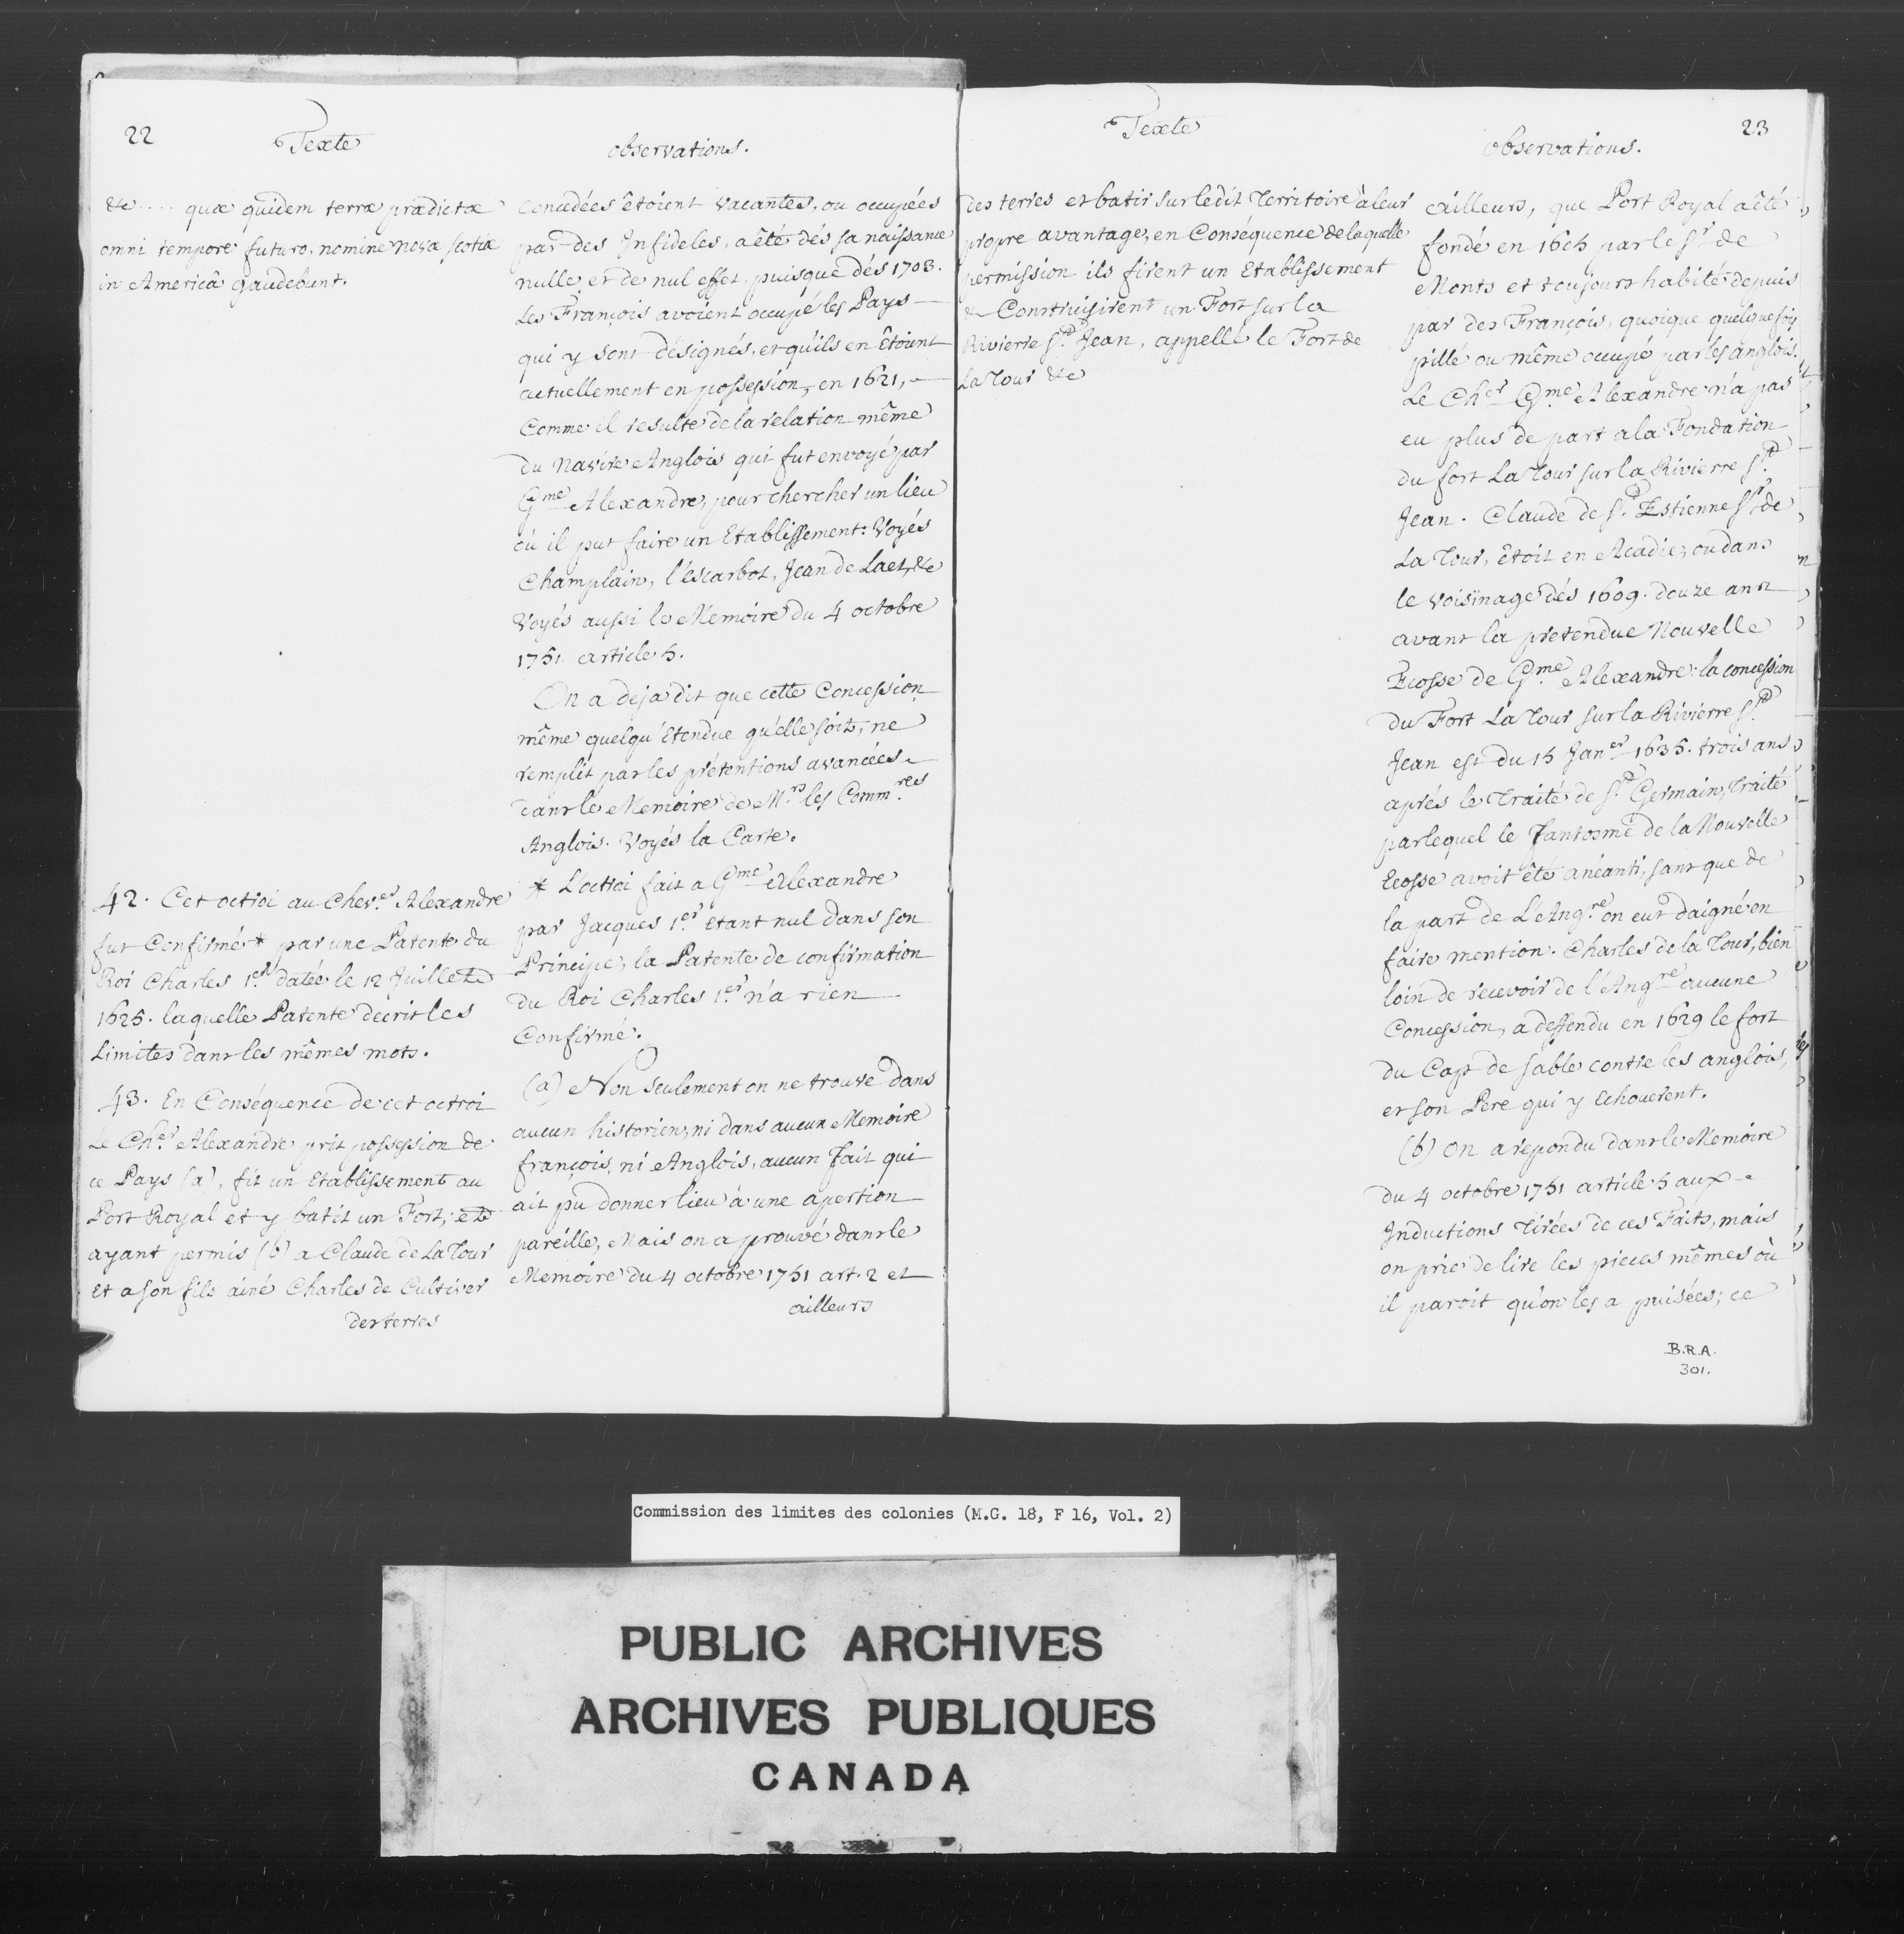 22
Texte
observations.
&c .... quæ quidem terræ prædictæ
omni tempore futuro, nomine nova scotiæ
in Americâ gaudebunt.
42. Cet octroi au Chev.er Alexandre
fut Confirmé * par une Patente du
Roi Charles 1.er datée le 12 Juillet
1625. laquelle Patente decrit les
Limites dans les mêmes mots.
43. En Conséquence de cet octroi
Le Ch.er Alexandre prit possession de
ce Pays (a), fit un Etablissement au
Port Royal et y batit un Fort, et
ayant permis (b) a Claude de La Tour
Et a son fils ainé Charles de Cultiver
des terres
Concedées êtoient vacantes, ou occupées
par des Infideles, a êté dés sa naissance
nulle et de nul effet, puisque dés 1703.
Les François avoient occupé les Pays
qui y sont désignés, et qu'ils en Etoient
actuellement en possession, en 1621,
Comme il resulte de la relation même
du Navire Anglois qui fut envoyé par
G.me Alexandre, pour chercher un lieu
où il put faire un Etablissement: Voyés
Champlain, l'escarbot, Jean de Laet, &c
Voyés aussi le Memoire du 4 octobre
1751 article 5.
On a deja dit que cette Concession
même quelqu'étendue qu'elle soit, ne
remplit par les prétentions avancées
dans le Memoire de M.rs les Comm.res
Anglois. Voyés la Carte.
* L'octroi fait a G.me Alexandre
par Jacques 1.er Etant nul dans son
Principe, la Patente de confirmation
du Roi Charles 1.er n'a rien
Confirmé.
(a) Non seulement on ne trouve dans
aucun historien, ni dans aucun Memoire
françois, ni Anglois, aucun fait qui
ait pu donner lieu à une apertion
pareille, Mais on a prouvé dans le
Memoire du 4 octobre 1751 art. 2 et
ailleurs
Texte
observations.
23
des terres et batir sur ledit Territoire à leur
propre avantage, en Conséquence de laquelle
permission ils firent un Etablissement
& Construisirent un Fort sur la
Rivierre S.t Jean, appellé le Fort de
La Tour &c
ailleurs, que Port Royal a êté
fondé en 1605 par le S.r de
Monts et toujours habité depuis
par des François, quoique quelquefois
pillé ou même occupé par les anglois.
Le Ch.er G.me Alexandre n'a pas
eu plus de part a la Fondation
du fort La Tour sur la Rivierre S.t
Jean. Claude de S.t Estienne S.r de
La Tour, êtoit en Acadie, ou dans
le voisinage dés 1609. douze ans
avant la pretendue Nouvelle
Ecosse de G.me Alexandre. la concession
du Fort La Tour sur la Rivierre S.t
Jean est du 15 Jan.er 1635. trois ans
aprés le Traité de S.t Germain, Traité
par lequel le fantosme de la Nouvelle
Ecosse avoit êté anéanti, sans que de
la part de L'Ang.re on eut daigné en
faire mention. Charles de la Tour, bien
loin de recevoir de l'Ang.re aucune
Concession, a deffendu en 1629 le fort
du Cap de sable contre les anglois,
et son Pere qui y Echouerent.
(b) On a repondu dans le Memoire
du 4 octobre 1751 article 5 aux
Inductions tirées de ces Faits, mais
on prie de lire les pieces mêmes où
il paroit qu'on les a puisées; ce
B.R.A.
301.
Commission des limites des colonies (M.G. 18, F 16, Vol. 2)
PUBLIC ARCHIVES
ARCHIVES PUBLIQUES
CANADA